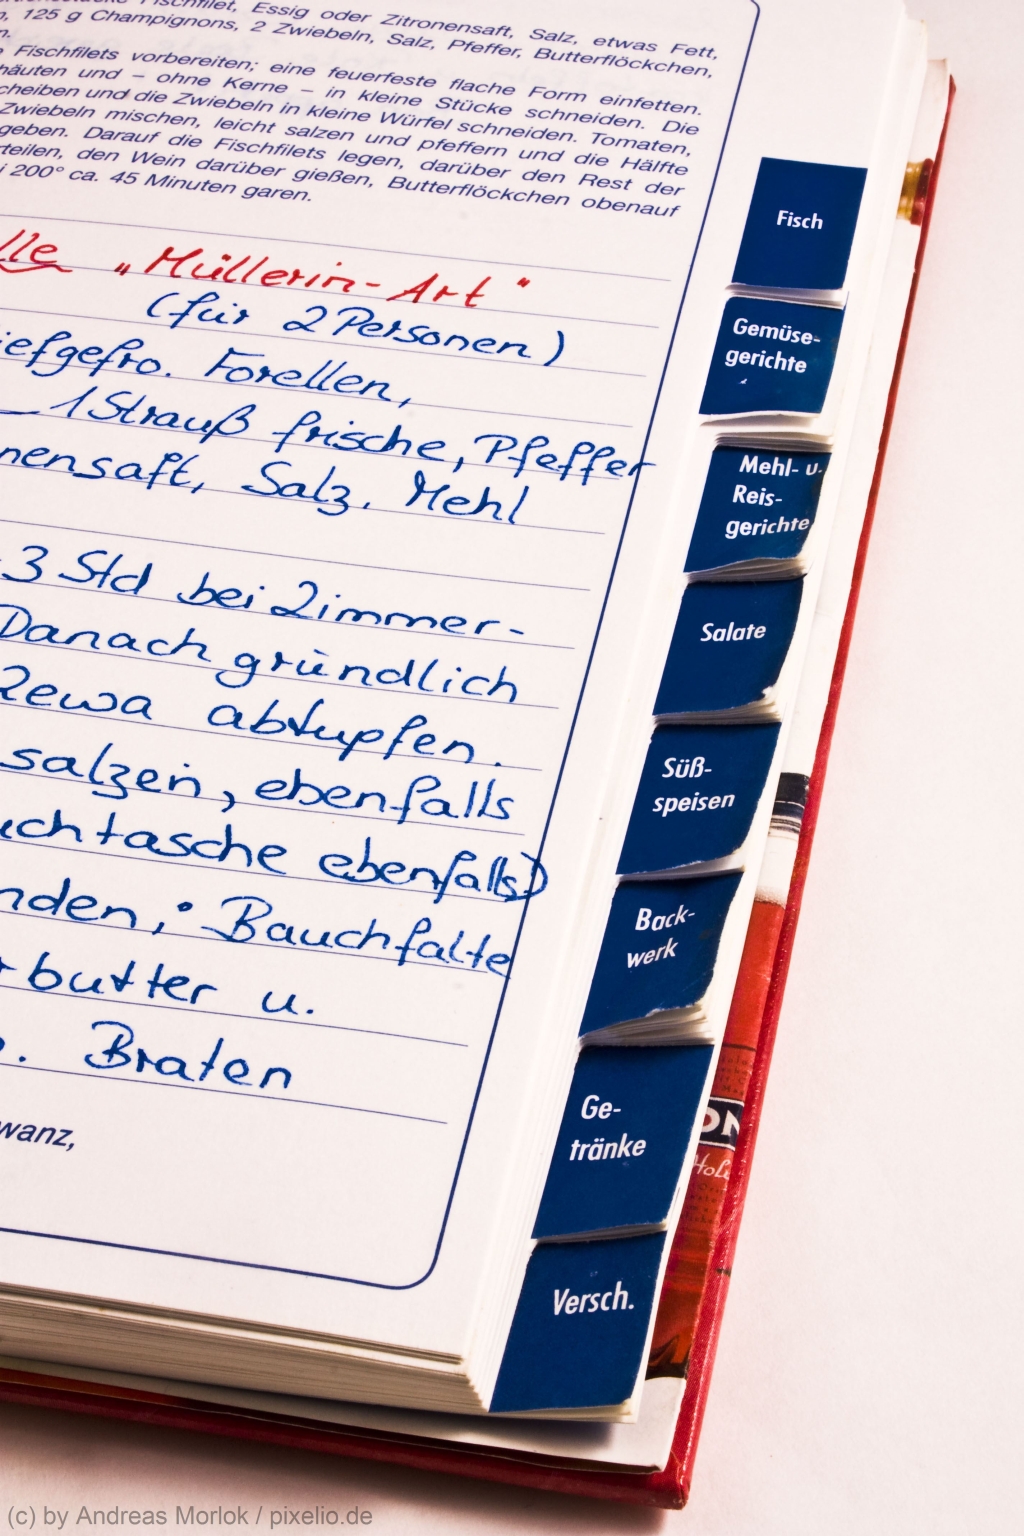 Fischfilet, Essig oder Zitronensaft, Salz, etwas Fett,
125 g Champignons, 2 Zwiebeln, Salz, Pfeffer, Butterflöckchen,
Fischfilets vorbereiten; eine feuerfeste flache Form einfetten.
häuten und – ohne Kerne – in kleine Stücke schneiden. Die
cheiben und die Zwiebeln in kleine Würfel schneiden. Tomaten,
Zwiebeln mischen, leicht salzen und pfeffern und die Hälfte
geben. Darauf die Fischfilets legen, darüber den Rest der
teilen, den Wein darüber gießen, Butterflöckchen obenauf
200° ca. 45 Minuten garen.
lle „Müllerin-Art"
(für 2 Personen)
iefgefro. Forellen,
1 Strauß frische, Pfeffer
nensaft, Salz, Mehl
3 Std bei Zimmer-
Danach gründlich
Zewa abtupfen.
salzen, ebenfalls
uchtasche ebenfalls)
nden, Bauchfalte
butter u.
Braten
wanz,
Fisch
Gemüse-
gerichte
Mehl- u.
Reis-
gerichte
Salate
Süß-
speisen
Back-
werk
Ge-
tränke
Versch.
(c) by Andreas Morlok / pixelio.de